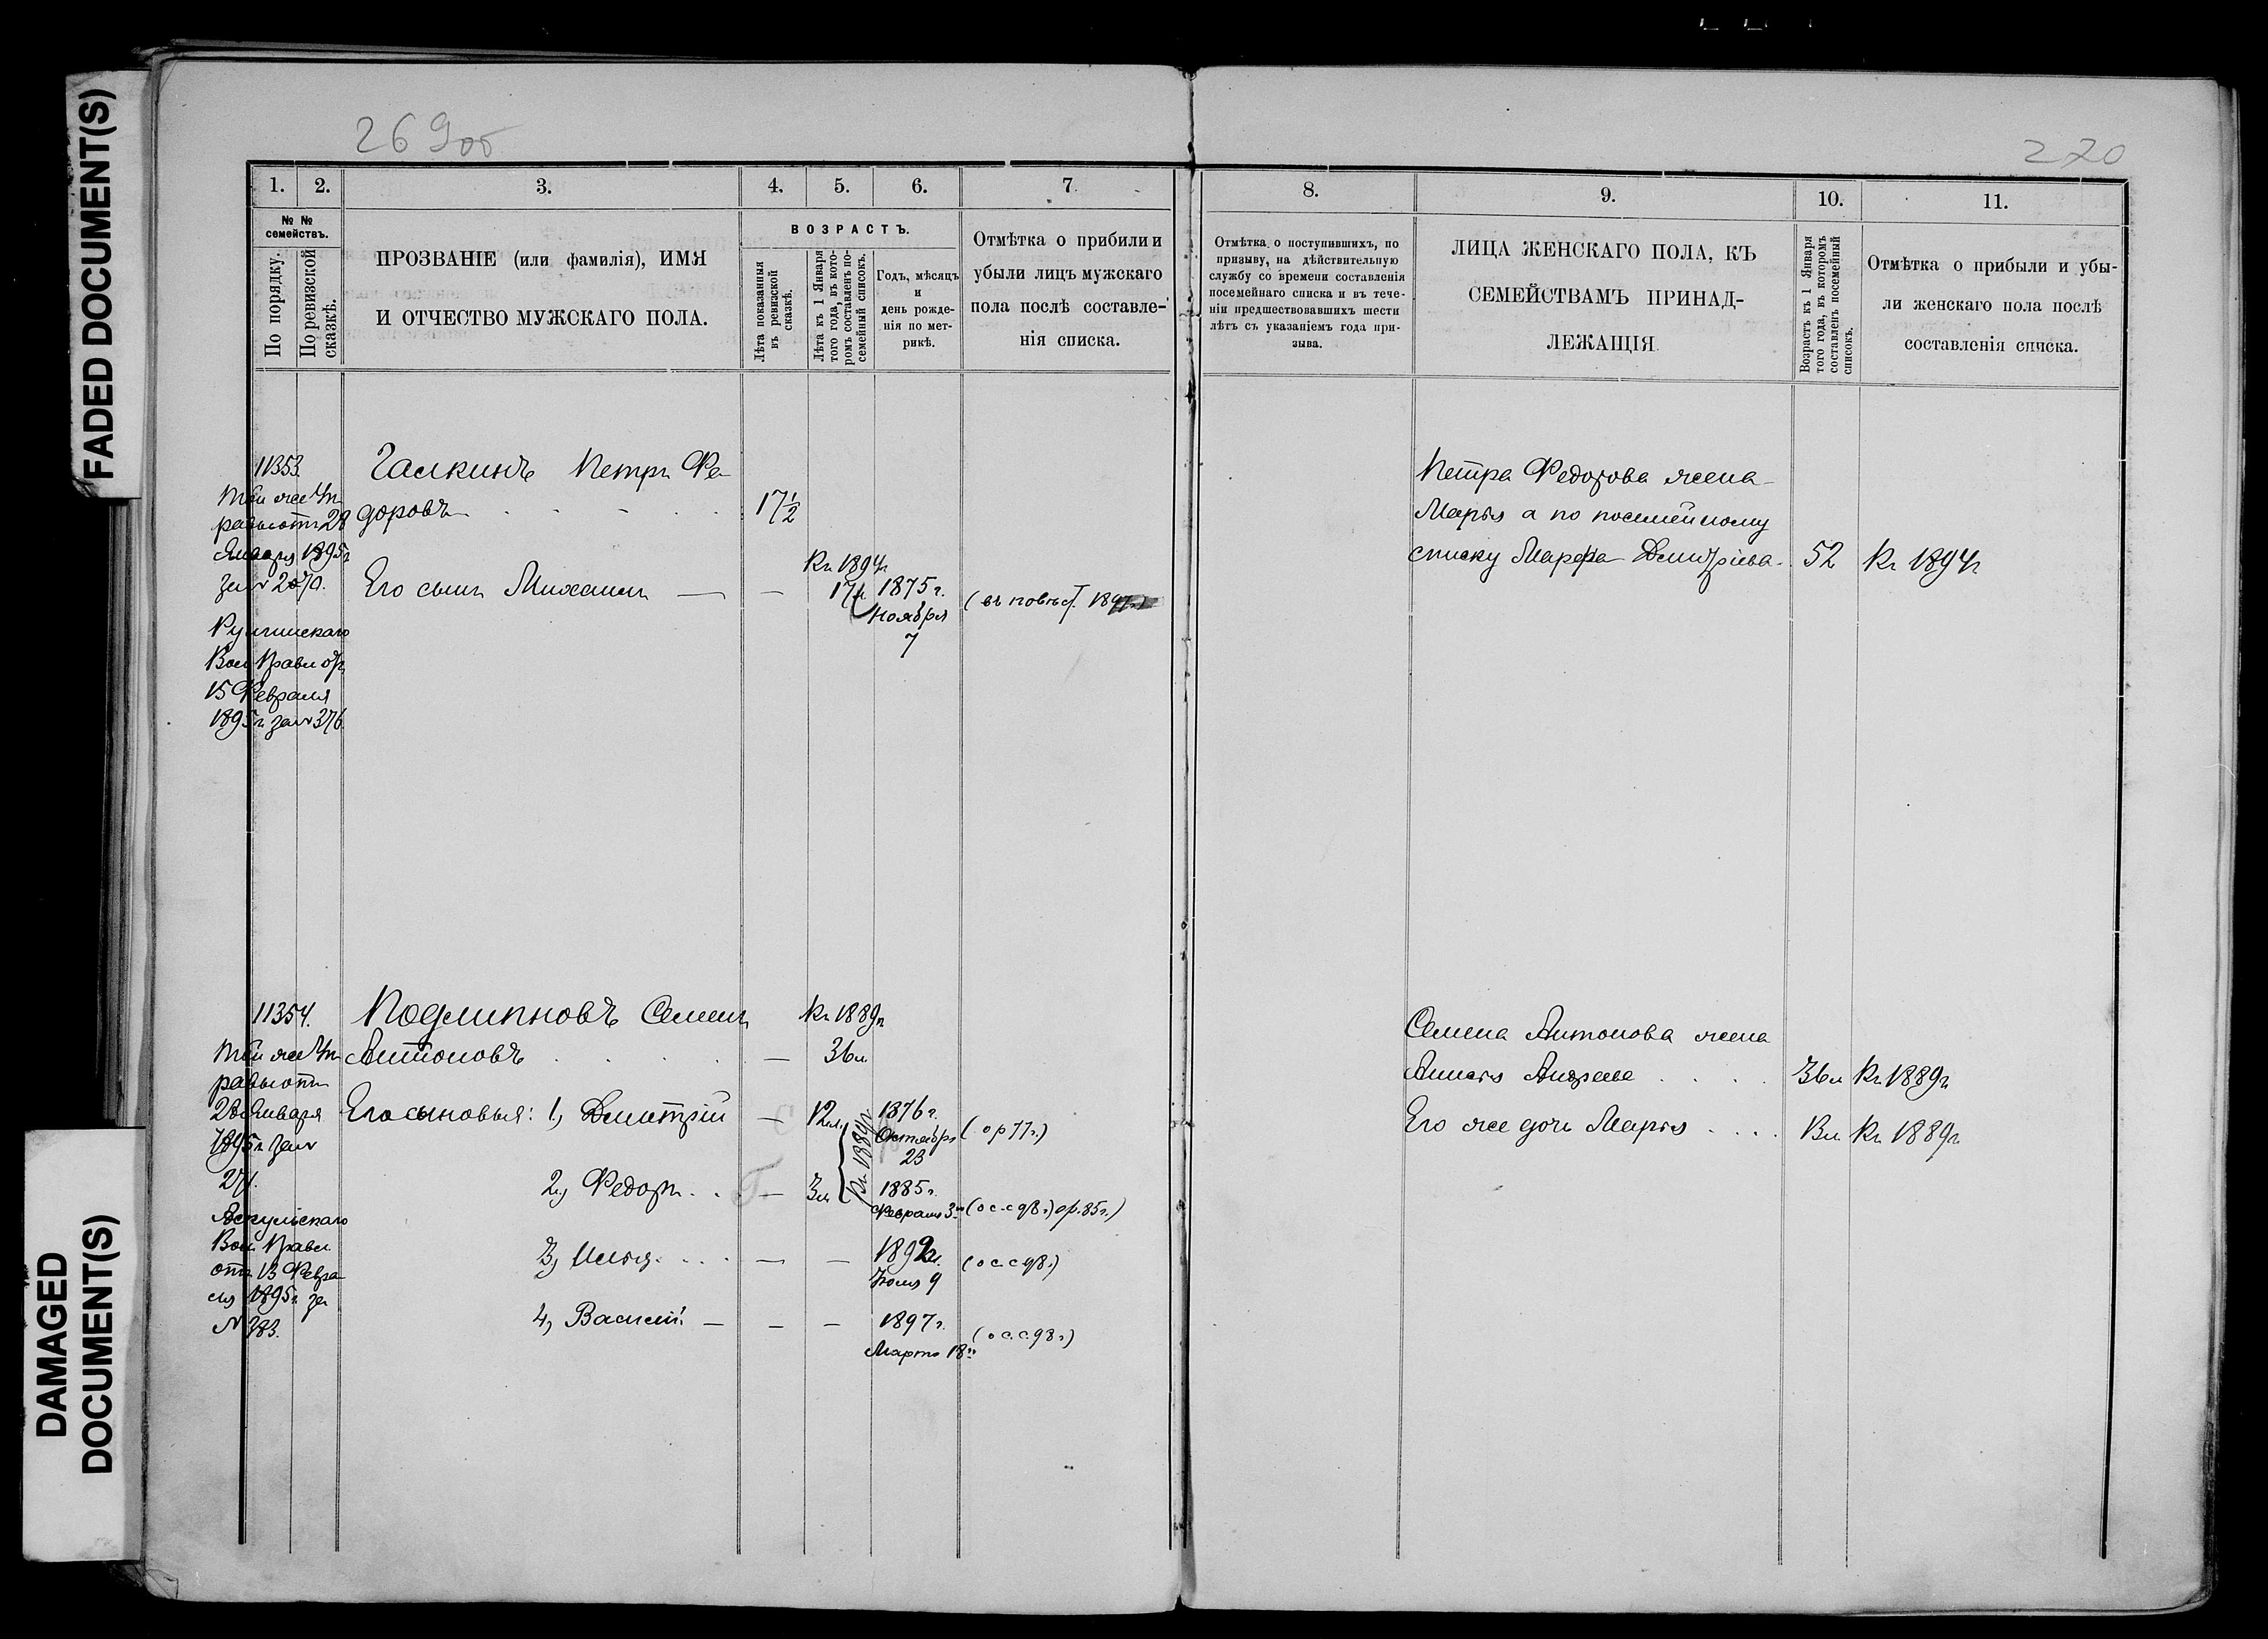 FADED DOCUMENT(S)
DAMAGED
DOCUMENT(S)
269об
270
1.
2.
3.
4.
5.
6.
7.
№ №
семействъ.
По порядку.
По ревизской
сказкѣ.
ПРОЗВАНІЕ (или фамилія), ИМЯ
И ОТЧЕСТВО МУЖСКАГО ПОЛА.
ВОЗРАСТЪ.
Лѣта показанныя
въ ревизской
сказкѣ.
Лѣта къ 1 Января
того года, въ кото-
ромъ составленъ по-
семейный списокъ.
Годъ, мѣсяцъ
и
день рожде-
нія по мет-
рикѣ.
Отмѣтка о прибыли и
убыли лицъ мужскаго
пола послѣ составле-
нія списка.
11353.
Той же Уп
равы отъ 28
Января 1895г
за № 270.
Ругинскаго
Вол Правл отъ
15 Февраля
1895г. за № 376.
Галкинъ Петръ Фе-
доровъ
17½
Его сынъ Михаилъ
Къ 1894г
17л
1875г.
Ноября
7
11354.
Той же Уп
равы отъ
28 Января
1895г. за №
271.
Вол Правл
отъ 13 Февра
ля 1895г. за
№ 383.
Подлипновъ Семенъ
Антоновъ
Къ 1889г
36л
Его сыновья: 1, Дмитрій — 12л.
Къ 1889г
1876г.
Октября
23
(ор 77г.)
2, Федоръ — 3л
1885г.
Февраля 3го
(о с.с 98г.) ор. 85г.)
3, Илья — —
1892г.
Іюля 9
(о с.с 98г.)
4, Василій — — —
1897г.
Марта 18го
(о с.с. 98г.)
8.
9.
10.
11.
Отмѣтка о поступившихъ, по
призыву, на дѣйствительную
службу со времени составленія
посемейнаго списка и въ тече-
ніи предшествовавшихъ шести
лѣтъ съ указаніемъ года при-
зыва.
ЛИЦА ЖЕНСКАГО ПОЛА, КЪ
СЕМЕЙСТВАМЪ ПРИНАД-
ЛЕЖАЩІЯ
Возрастъ къ 1 Января
того года, въ которомъ
составленъ посемейный
списокъ.
Отмѣтка о прибыли и убы-
ли женскаго пола послѣ
составленія списка.
Петра Федорова жена
Марья а по посемейному
списку Марфа Дмитріева. 52 Къ 1894г
Семена Антонова жена
Анна Андреева 36л Къ 1889г
Его же дочь Марья 13л Къ 1889г